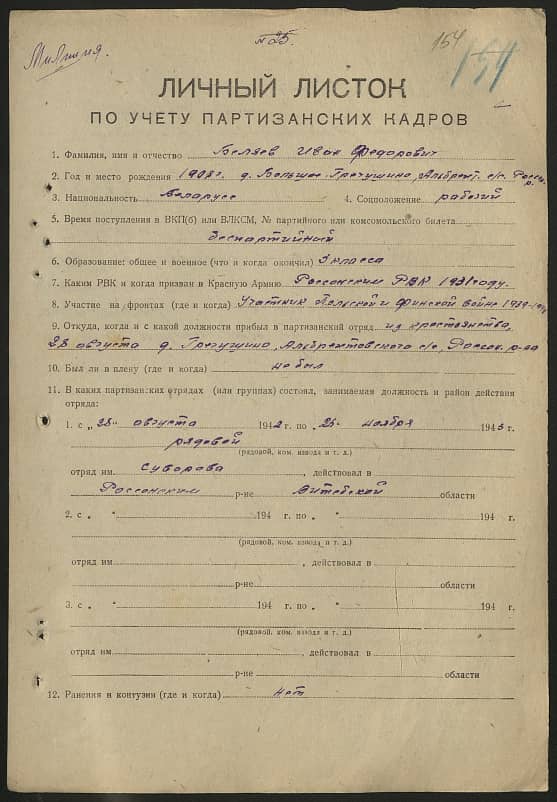 Милиция.
№ 25.
154
154
ЛИЧНЫЙ ЛИСТОК
ПО УЧЕТУ ПАРТИЗАНСКИХ КАДРОВ
1. Фамилия, имя и отчество Беляев Иван Федорович
2. Год и место рождения 1908 г. д. Большое Гречушино, Альбрехт. с/с. Россон. р.
3. Национальность Беларусс 4. Соцположение рабочий
5. Время поступления в ВКП(б) или ВЛКСМ, № партийного или комсомольского билета
беспартийный
6. Образование: общее и военное (что и когда окончил) 3 класса
7. Каким РВК и когда призван в Красную Армию Россонским РВК 1931 году.
8. Участие на фронтах (где и когда) Участник Польской и Финской войне 1939-
9. Откуда, когда и с какой должности прибыл в партизанский отряд из крестьянства,
28 августа д. Гречушино, Альбрехтовского с/с, Россон. р-на
10. Был ли в плену (где и когда) не был
11. В каких партизанских отрядах (или группах) состоял, занимаемая должность и район действия
отряда:
1. с „28" августа 1942 г. по „25" ноября 1943 г.
рядовой
(рядовой, ком. взвода и т. д.)
отряд им. Суворова , действовал в
Россонским р-не Витебской области
2. с „ " 194 г. по „ " 194 г.
(рядовой, ком. взвода и т. д.)
отряд им. , действовал в
р-не области
3. с „ " 194 г. по „ " 194 г.
(рядовой, ком. взвода и т. д.)
отряд им. , действовал в
р-не области
12. Ранения и контузии (где и когда) нет